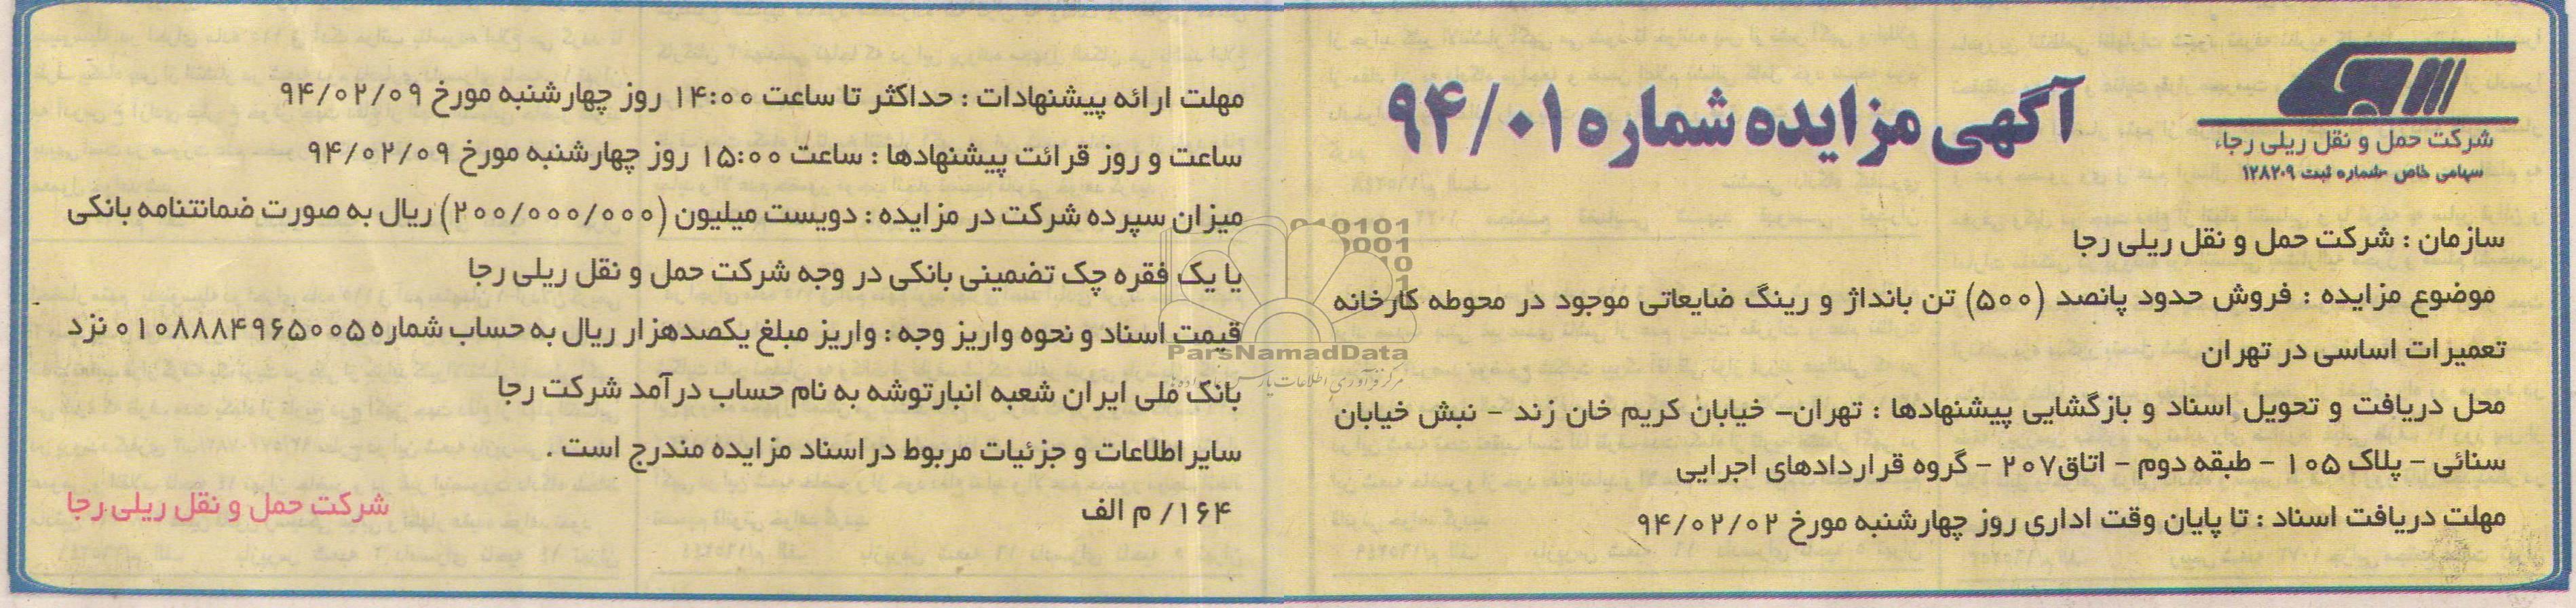 آگهی مزایده شماره ۹۴/۰۱
شرکت حمل و نقل ریلی رجاء
سهامی خاص -شماره ثبت ۱۲۸۲۰۹
سازمان : شرکت حمل و نقل ریلی رجا
موضوع مزایده : فروش حدود پانصد (۵۰۰) تن بانداژ و رینگ ضایعاتی موجود در محوطه کارخانه
تعمیرات اساسی در تهران
محل دریافت و تحویل اسناد و بازگشایی پیشنهادها : تهران- خیابان کریم خان زند - نبش خیابان
سنائی - پلاک ۱۰۵ - طبقه دوم - اتاق۲۰۷ - گروه قراردادهای اجرایی
مهلت دریافت اسناد : تا پایان وقت اداری روز چهارشنبه مورخ ۹۴/۰۲/۰۲
مهلت ارائه پیشنهادات : حداکثر تا ساعت ۱۴:۰۰ روز چهارشنبه مورخ ۹۴/۰۲/۰۹
ساعت و روز قرائت پیشنهادها : ساعت ۱۵:۰۰ روز چهارشنبه مورخ ۹۴/۰۲/۰۹
میزان سپرده شرکت در مزایده : دویست میلیون (۲۰۰/۰۰۰/۰۰۰) ریال به صورت ضمانتنامه بانکی
یا یک فقره چک تضمینی بانکی در وجه شرکت حمل و نقل ریلی رجا
قیمت اسناد و نحوه واریز وجه : واریز مبلغ یکصدهزار ریال به حساب شماره ۰۱۰۸۸۸۴۹۶۵۰۰۵ نزد
بانک ملی ایران شعبه انبارتوشه به نام حساب درآمد شرکت رجا
سایر اطلاعات و جزئیات مربوط در اسناد مزایده مندرج است .
۱۶۴/ م الف
شرکت حمل و نقل ریلی رجا
ParsNamadData
مرکز فرآوری اطلاعات پارس نماد داده ها